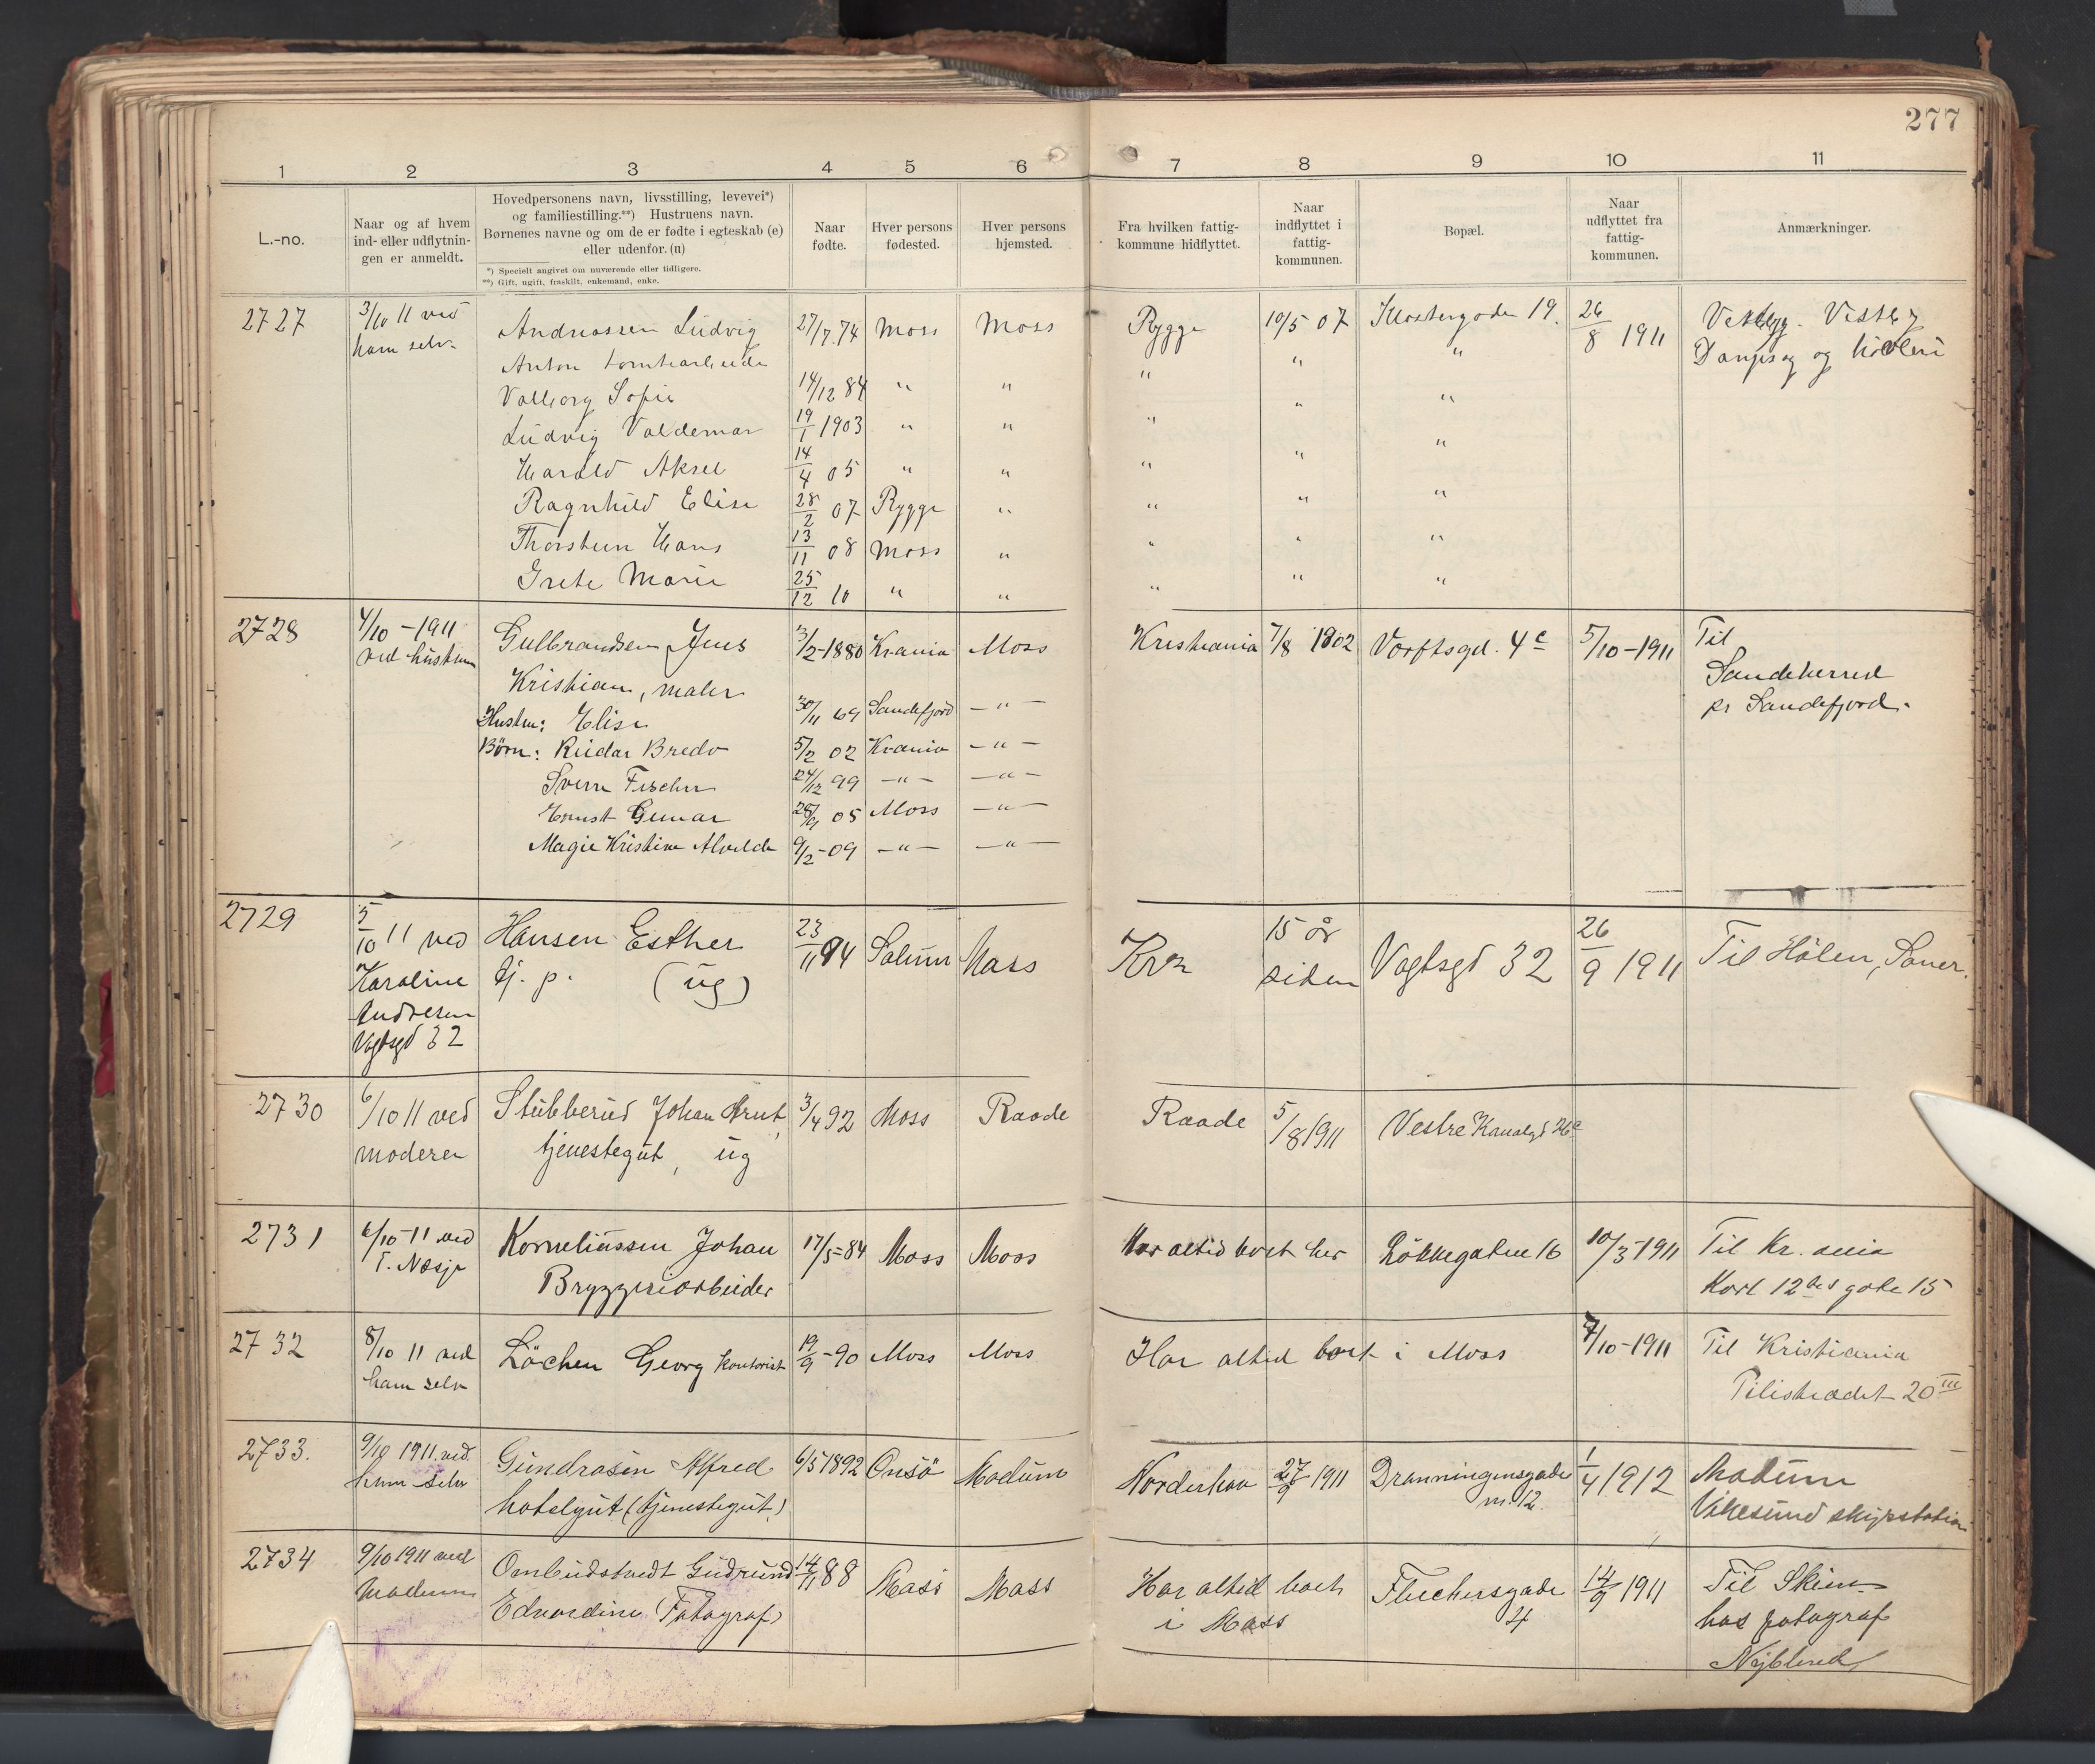 277
1 2 3 4 5 6 7 8 9 10 11
L.-no.
Naar og af hvem
ind- eller udflytnin-
gen er anmeldt.
Hovedpersonens navn, livsstilling, levevei*)
og familiestilling.**) Hustruens navn.
Børnenes navne og om de er fødte i egteskab (e)
eller udenfor. (u)
*) Specielt angivet om nuværende eller tidligere.
**) Gift, ugift, fraskilt, enkemand, enke.
Naar
fødte.
Hver persons
fødested.
Hver persons
hjemsted.
Fra hvilken fattig-
kommune hidflyttet.
Naar
indflyttet i
fattig-
kommunen.
Bopæl.
Naar
udflyttet fra
fattig-
kommunen.
Anmærkninger.
2727
3/10 11 ved
ham selv.
Andreassen Ludvig
Anton tomtearbeider
Valborg Sofie
Ludvig Valdemar
Harald Aksel
Ragnhild Elise
Thorstein Hans
Grete Marie
27/7.74 Moss Moss
14/12 84 " "
19/1 1903 " "
14/4 05 " "
28/2 07 Rygge "
13/11 08 Moss "
25/12 10 " "
Rygge 10/5 07 Klostergaden 19. 26/8 1911
" " "
" " "
" " "
" " "
" " "
" " "
Vestby. Vestby
Dampsag og høvleri
2728
4/10 - 1911
ved hustruen
Gulbrandsen Jens
Kristian, maler
Hustru: Elise
Børn: Reidar Bredo
Sverre Fischer
Ernst Gunar
Magie Kristine Alvilde
3/2-1880 Kr.ania Moss
30/11 69 Sandefjord - " -
5/2 02 Kr.ania - " -
24/12 99 - " - - " -
28/9 05 Moss - " -
9/2 - 09 - " - - " -
Kristiania 7/8 1902 Værftsgd. 4c 5/10 - 1911
Til
Sandeherred
pr Sandefjord.
2729
5/10 11 ved
Karoline
Andresen
Vogtsgd 32
Hansen Esther
tj. p. (ug)
23/11 94 Solum Moss
Kra 15 år
siden
Vogtsgd 32 26/9 1911 Til Hølen, Saner.
2730
6/10 11 ved
moderen
Stubberud Johan Arnt,
tjenestegut, ug
3/4 92 Moss Raade
Raade 5/8 1911 Vestre Kanalgd 26c
2731
6/10-11 ved
T. Næsje
Korneliussen Johan
Bryggeriarbeider
17/5-84 Moss Moss
Har altid boet her Løkkegaten 16 10/3-1911 Til Kr. ania
Karl 12tes gate 15
2732
8/10 11 ved
ham selv
Løchen Georg kontorist
19/9-90 Moss Moss
Har altid boet i Moss 7/10-1911 Til Kristiania
Pilestrædet 20 III
2733.
9/10 1911 ved
ham selv
Gundrosen Alfred
hotelgut (tjenestegut.)
6/5 1892 Onsø Modum
Norderhov 27/9 1911 Dronningensgade
nr. 12.
1/4 1912 Modum
Vikesund skysstation
2734
9/10 1911 ved
moderen
Ombudstvedt Gudrund
Edvardine (Fotograf)
14/11 88 Moss Moss
Har altid boet
i Moss
Fleichersgade
4
14/9 1911 Til Skien
hos fotograf
Nyblin